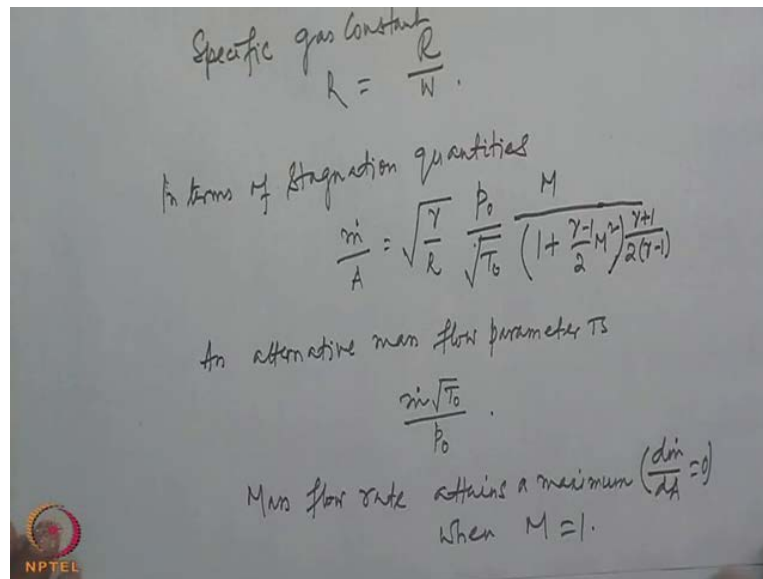 Specific gas Constant
R = R/W .
In terms of Stagnation quantities
ṁ/A = √(γ/R) p₀/√T₀ M/(1 + (γ-1)/2 M²)^((γ+1)/(2(γ-1)))
An alternative mass flow parameter is
ṁ√T₀/p₀ .
Mass flow rate attains a maximum (dṁ/dA = 0)
when M = 1.
NPTEL